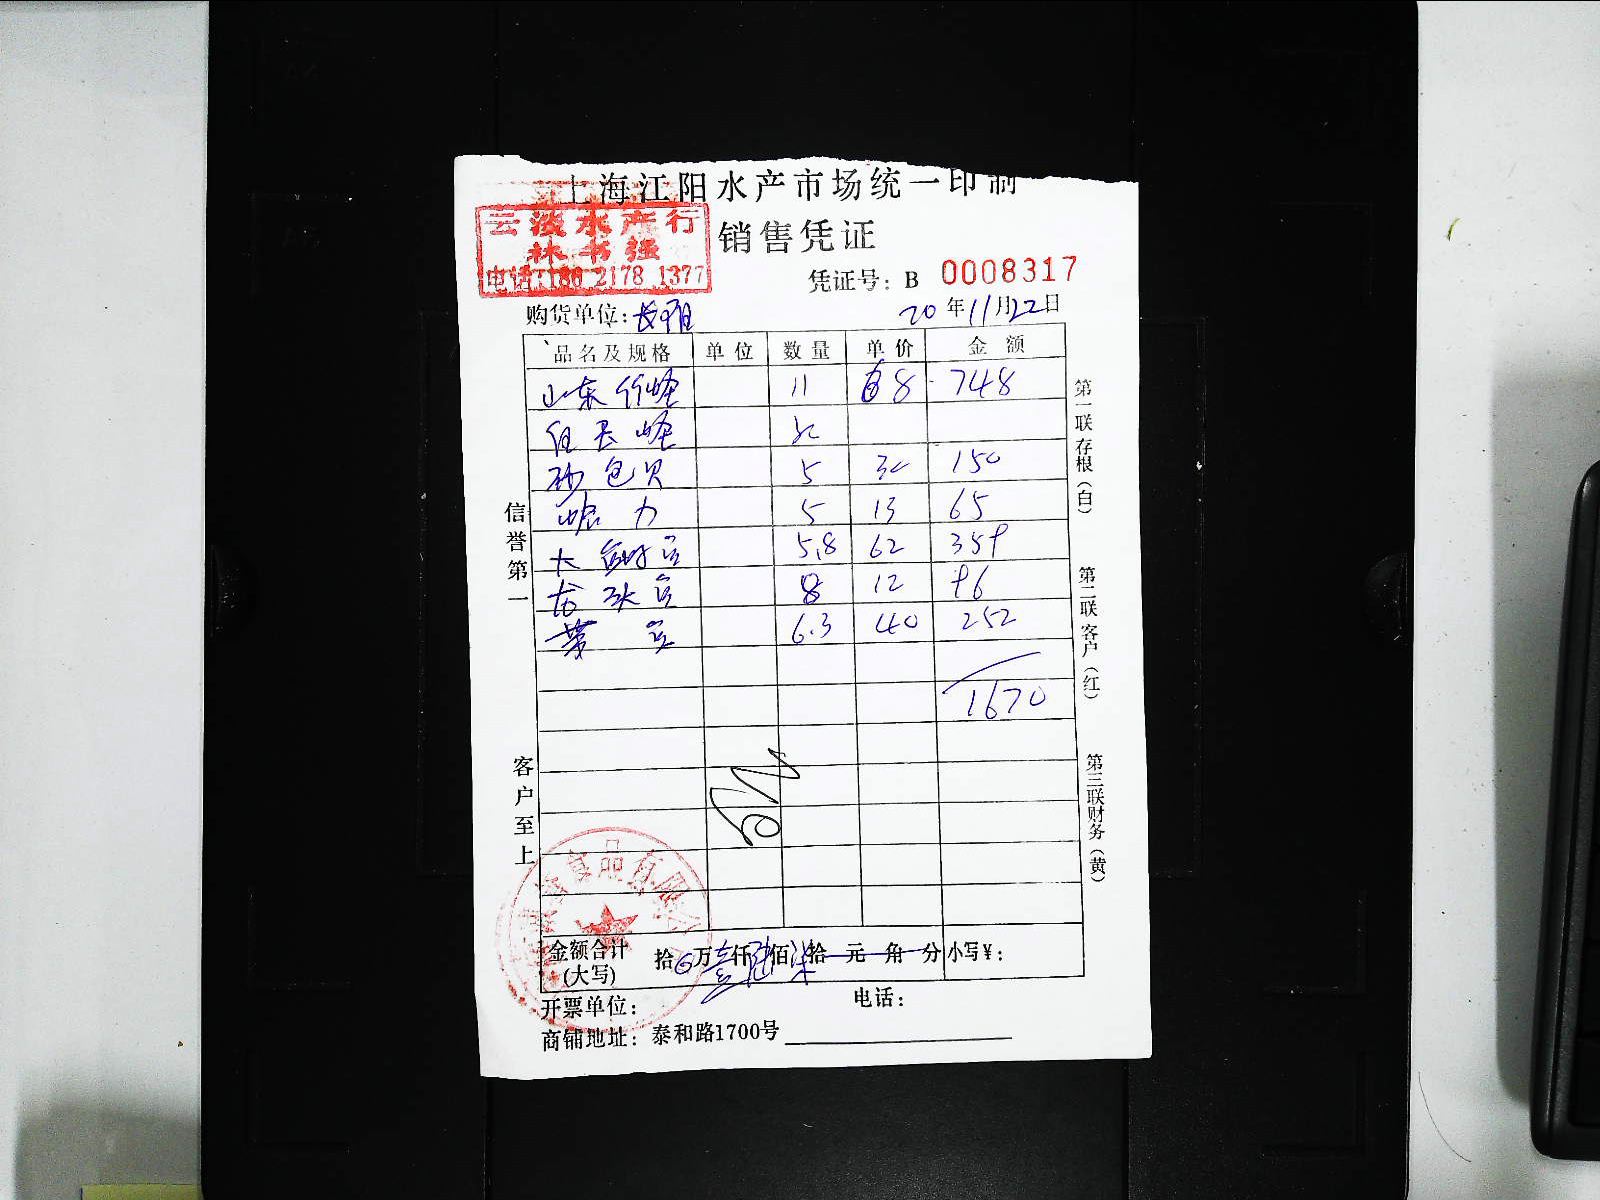 上海江阳水产市场统一印制
云淡水产行
林书强
电话:186 2178 1377
销售凭证
凭证号: B 0008317
购货单位:
20 年 11 月 22 日
品名及规格 单位 数量 单价 金额
山东竹蛏 11 68 748
蛏
砂包贝 5 30 150
5 13 65
大 5.8 62 359
龙 8 12 96
6.3 40 252
1670
信誉第一
客户至上
第一联存根(白)
第二联客户(红)
第三联财务(黄)
食品有限公
金额合计(大写) 拾 万 壹 仟 陆 佰 柒 拾 元 角 分 小写¥:
开票单位: 电话:
商铺地址: 泰和路1700号